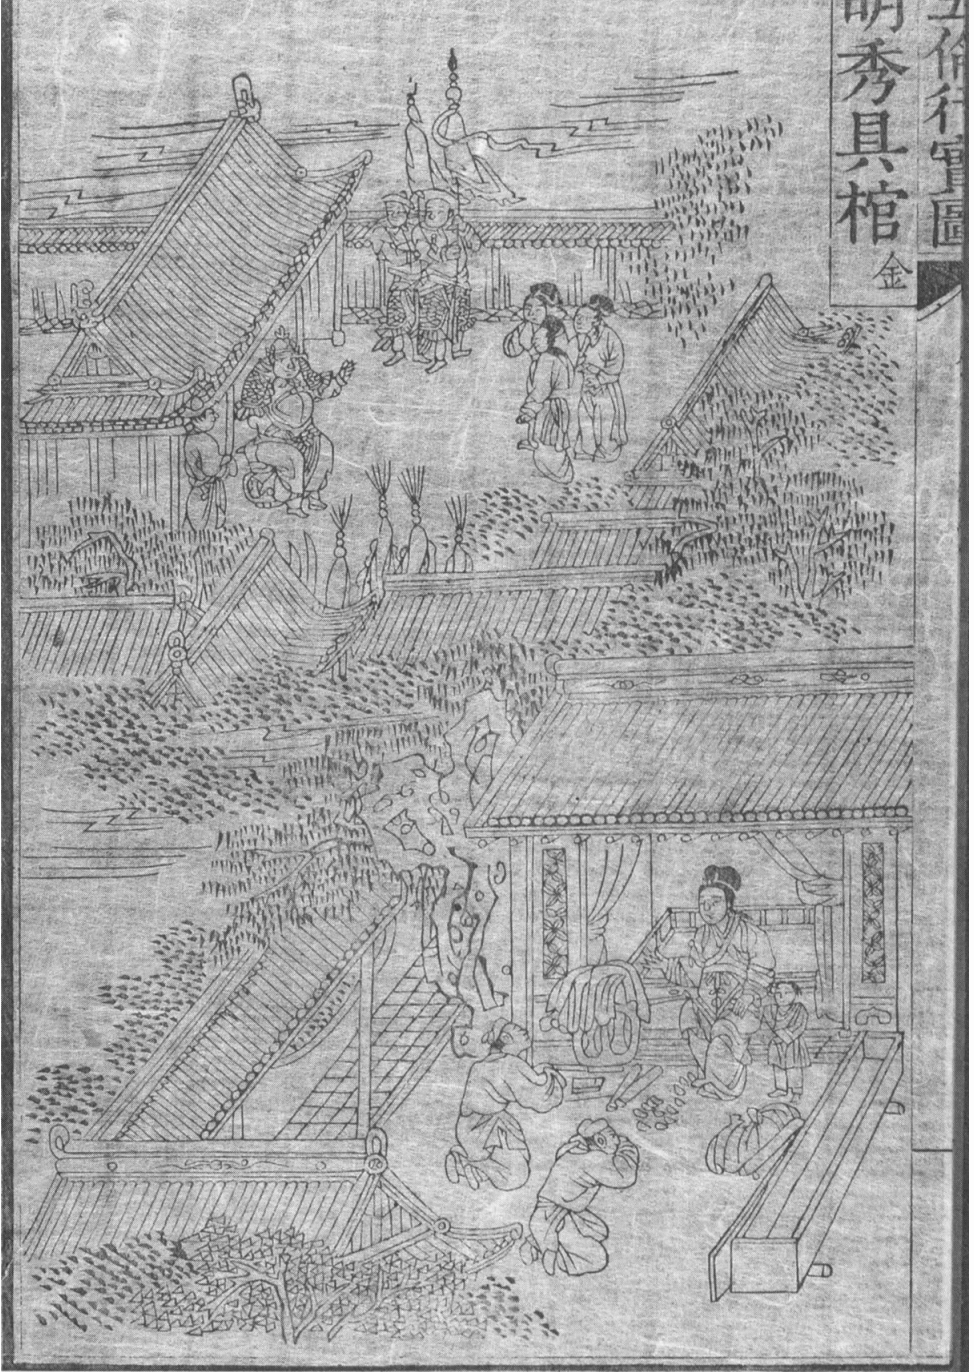 五倫行實圖
明秀具棺
金